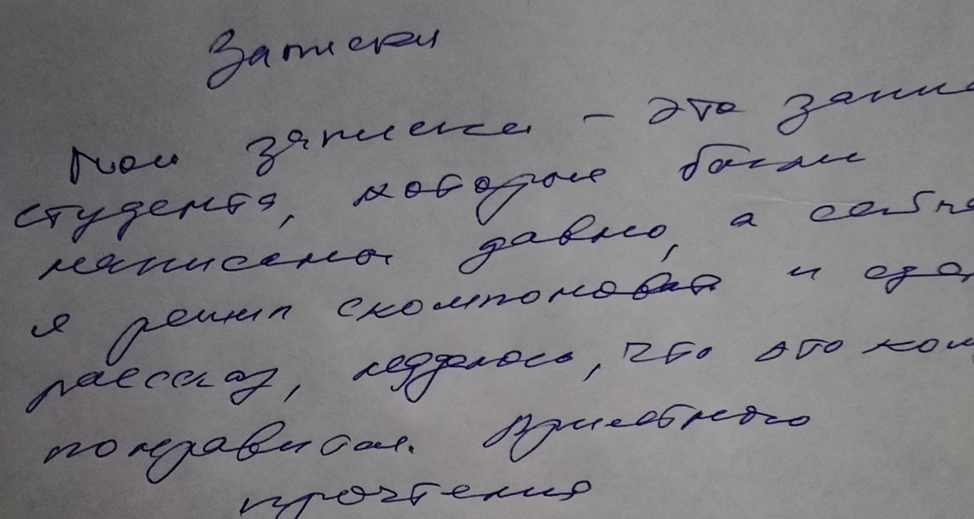 Записки
Мои записки - это запис
студента, которые были
написаны давно, а сейча
я решил скомпоновать и сдел
рассказ, надеюсь, что это ком
понравится. Приятного
прочтения